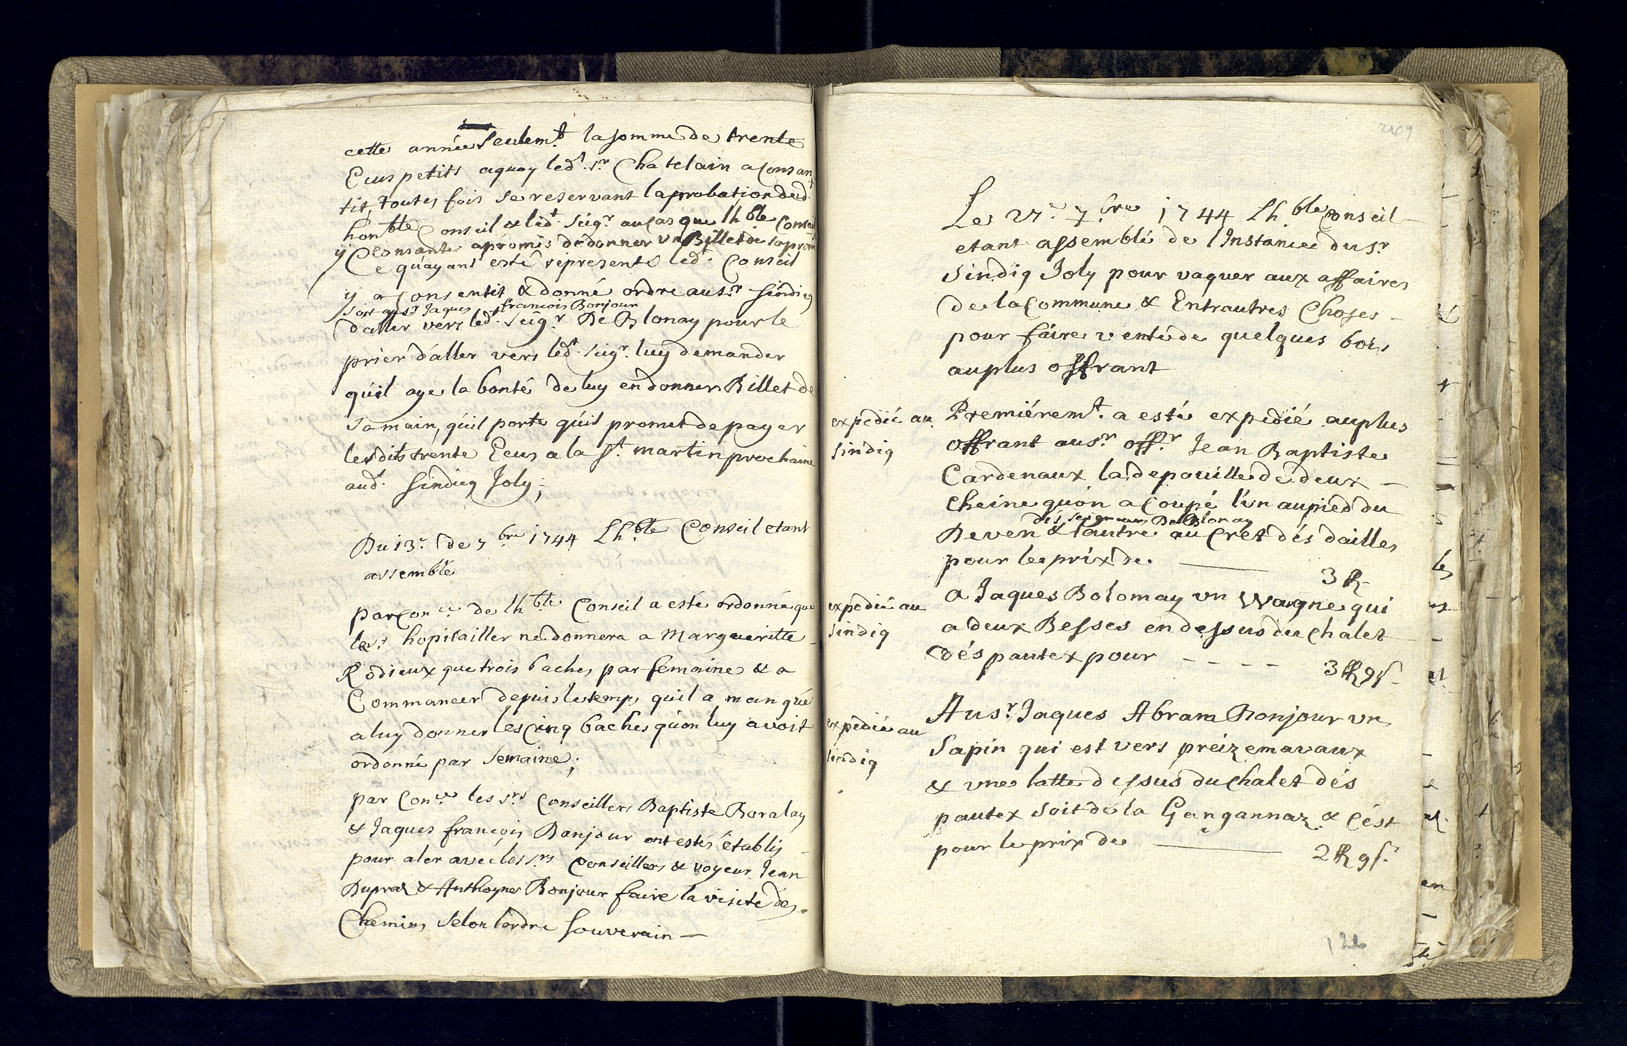 cette année seulemt. la somme de trente
Ecus petits aquoy ledt. sr. Chatelain a consan
tit toutes fois se reservant laprobation dud.
honble Conseil & ledt. seigr. au cas que lhble Conseil
y Consante apromis de donner un Billet de sa prom
Ce quayant esté representé ledt. Conseil
y a consentit & donné ordre au sr. sindiq
soit au sr. Jaques francois Bonjour
d'aller vers ledt. seigr. De Blonay pour le
prier d'aller vers ledt. seigr. luy demander
quil aye la bonté de luy en donner Billet de
sa main, quil porte quil promet de payer
lesdits trente Ecus a la st. martin prochaine
aud. sindiq Joly;
Du 13e. de 7bre 1744 Lhble Conseil etant
assemblé
par Conce de lhble Conseil a esté ordonné que
les hopitailler ne donnera a Margueritte
Rodieux que trois baches par semaine & a
Commancer depuis le temps quil a manqué
a luy donner les cinq baches quon luy avoit
ordonné par semaine;
par Conce les srs Conseillers Baptiste Boralay
& Jaques françois Bonjour ont estés établis
pour aler avec les srs Conseillers & voyeur Jean
Dupraz & Anthoyne Bonjour faire la visite des
Chemins selon lordre souverain —
249
Le 27e. 7bre 1744 Lhble Conseil
etant assemblé de l'Instance du sr.
sindiq Joly pour vaquer aux affaires
de la Commune & Entrautres Choses
pour faire vente de quelques bois
au plus offrant
expedié au
sindiq
Premiéremt. a esté expedié au plus
offrant au sr. offr. Jean Baptiste
Cardenaux la depouille de deux
cheine quon a coupé l'un au pied du
des seigneurs De Blonay
Deven & lautre au Cret dés dailles
pour le prix de — 3 ft
expedié au
sindiq
a Jaques Bolomay un Wargne qui
a deux Besses en dessus du chalet
dés pautex pour - - - - 3 ft 9 s.
expedié au
sindiq
Au sr. Jaques Abram Bonjour un
sapin qui est vers préizemavaux
& une latte dessus du chalet dés
pautex soit de la Gangannaz & c'est
pour le prix de — 2 ft 9 s.
126